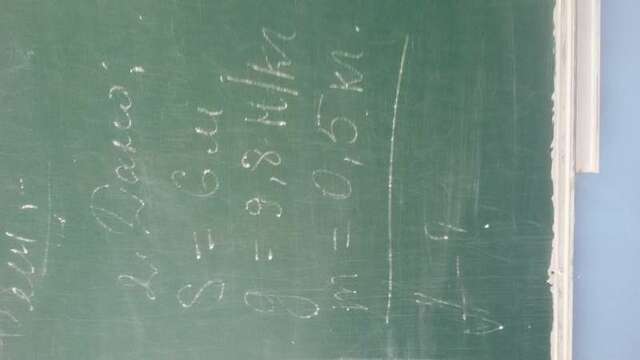 2. Дано:
S = 6 м
g = 9,8 Н/кг
m = 0,5 кг.
A - ?